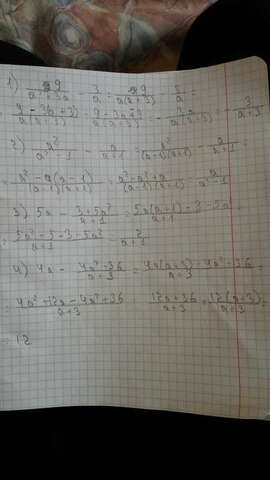 1) 9/(a²+3a) - 3/a = 9/(a(a+3)) - 3/a =
= (9-3(a+3))/(a(a+3)) = (9-3a-9)/(a(a+3)) = -3a/(a(a+3)) = -3/(a+3)
2) a²/(a²-1) - a/(a+1) = a²/((a-1)(a+1)) - a/(a+1) =
= (a²-a(a-1))/((a-1)(a+1)) = (a²-a²+a)/((a-1)(a+1)) = a/(a²-1)
3) 5a - (3+5a²)/(a+1) = (5a(a+1)-3-5a²)/(a+1) =
4) 4a - (4a²-36)/(a+3) = (4a(a+3)-4a²+36)/(a+3) =
= (4a²+12a-4a²+36)/(a+3) = (12a+36)/(a+3) = 12(a+3)/(a+3)
= 12